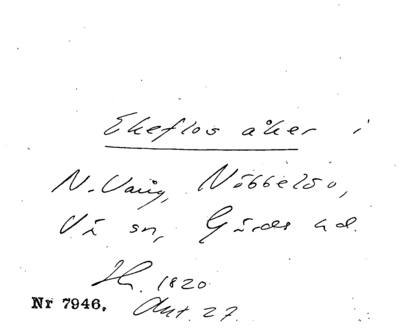 Ekeflos åker i
N. Vång, Nöbbelöv,
Vä sn, Gärds hd.
1820
Nr 7946. Akt. 27